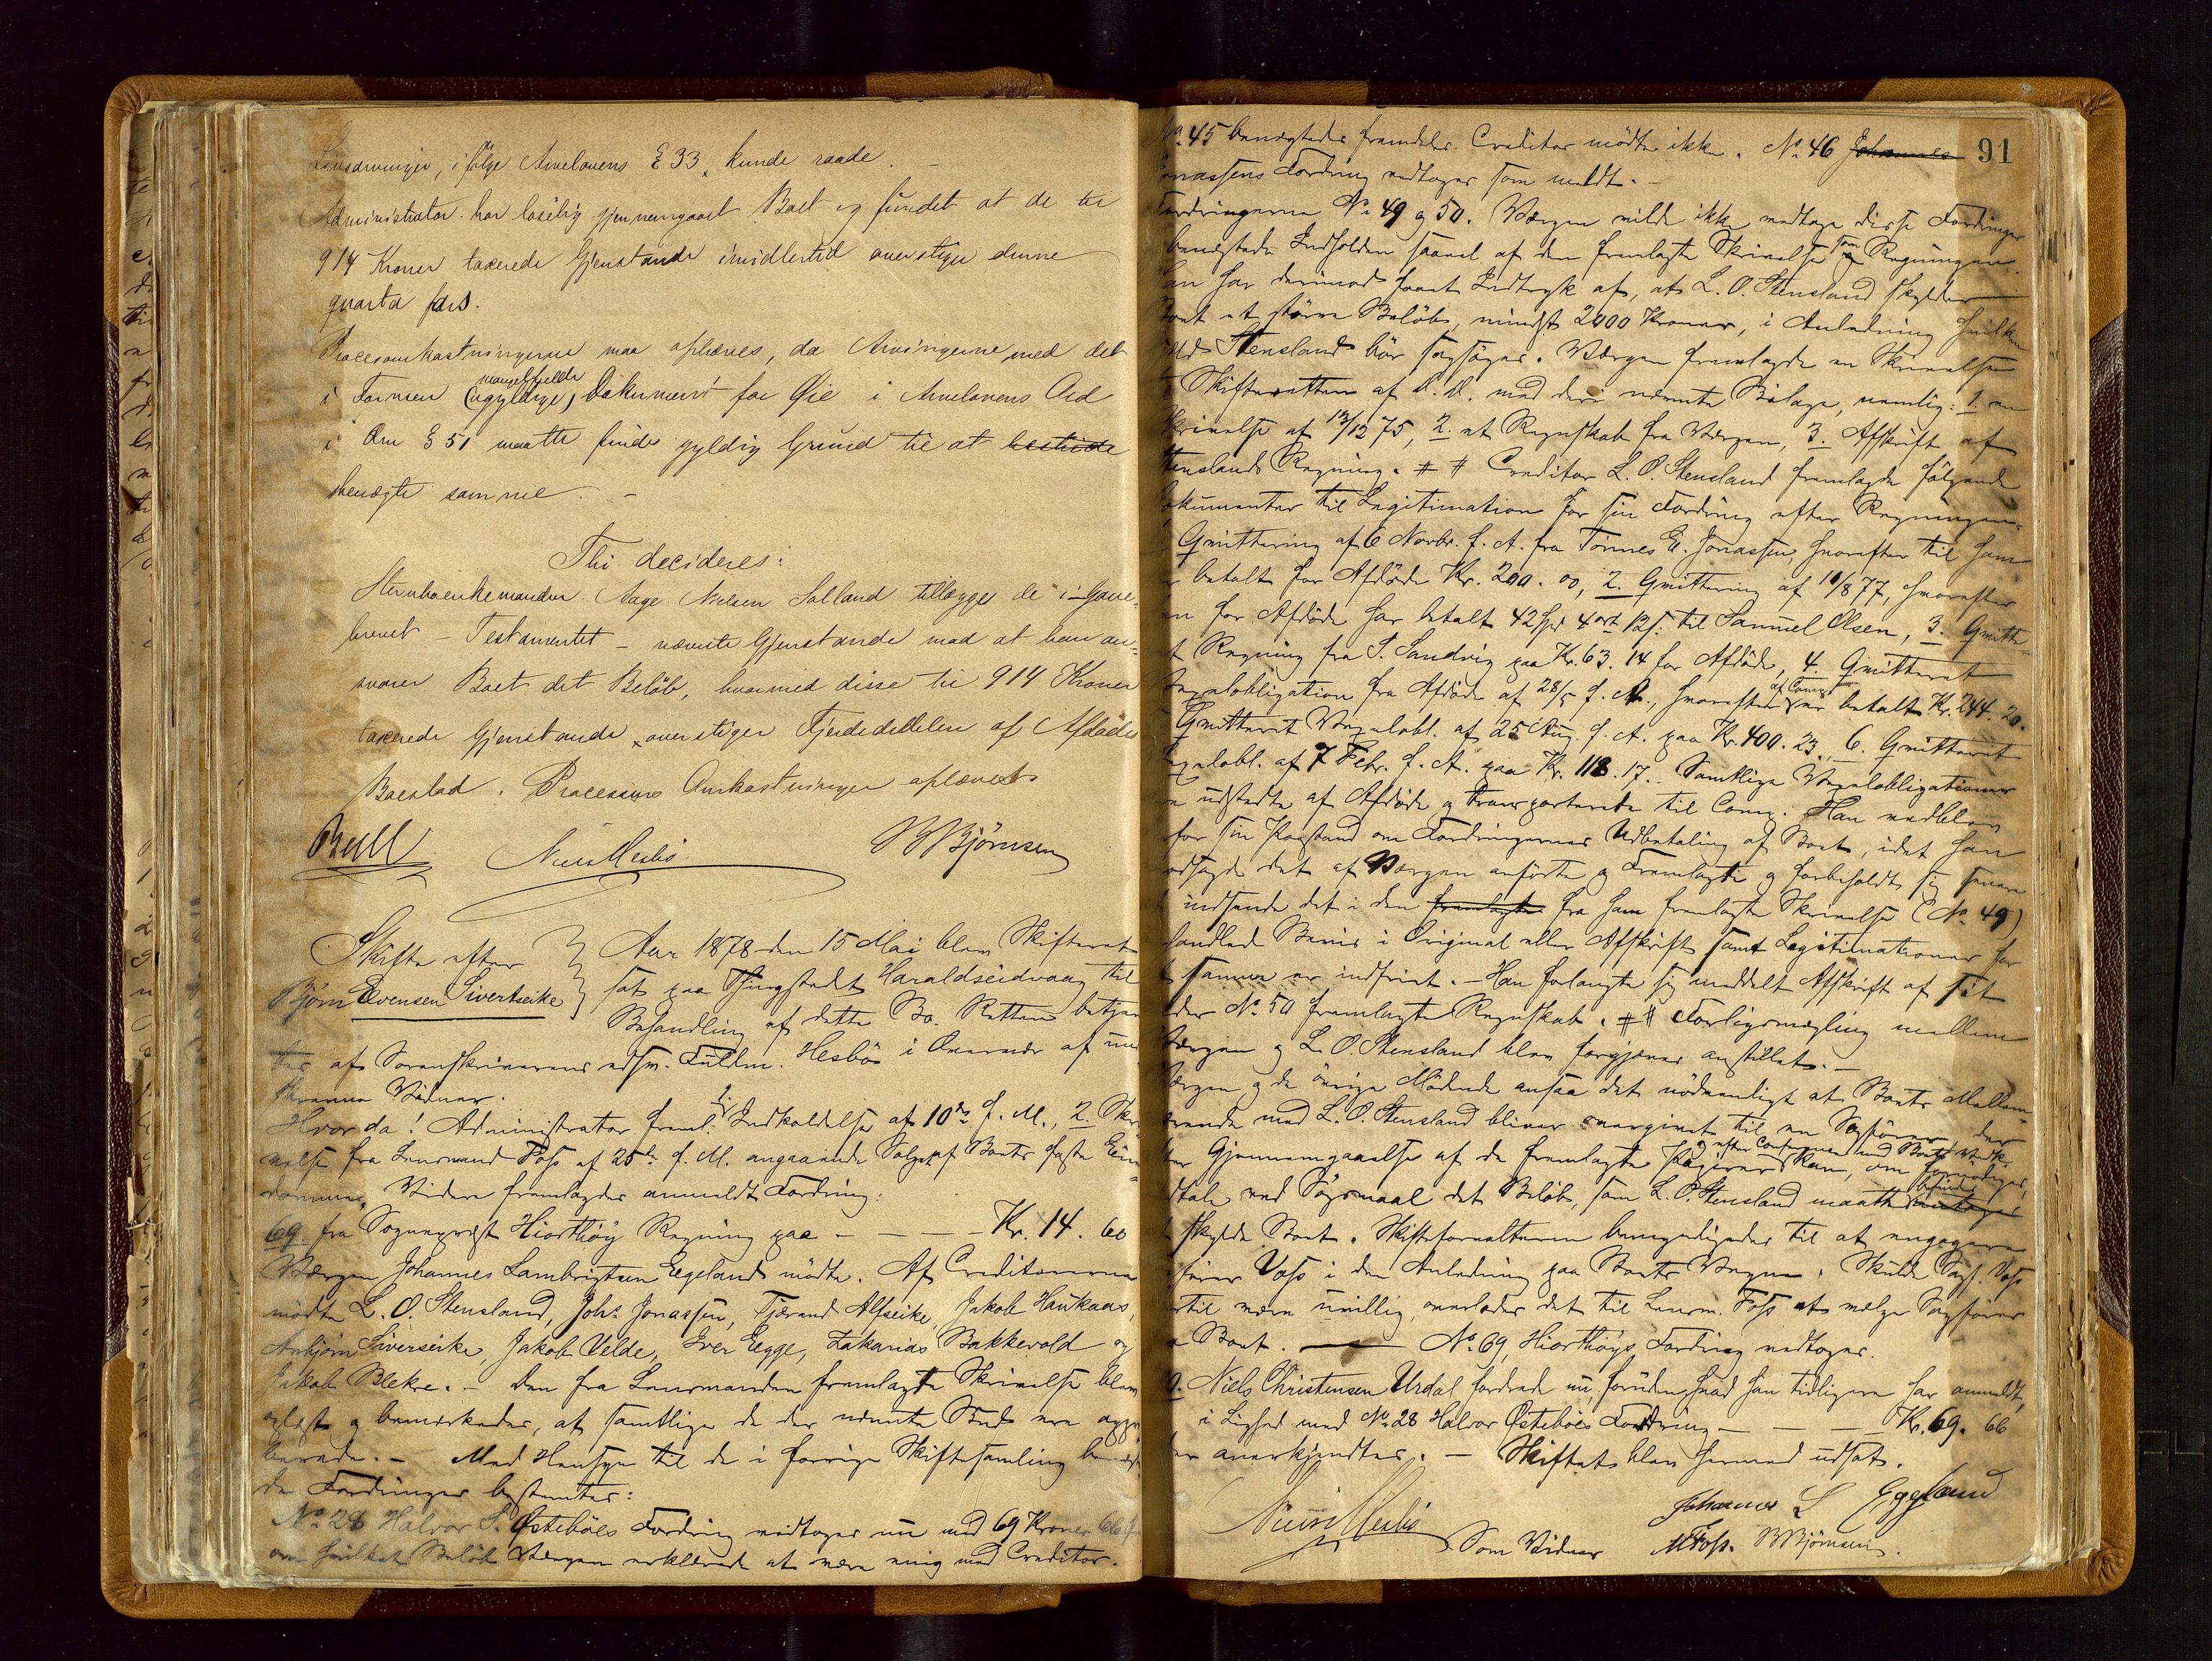 i følge Arvelovens § 33, kunde raade. –
Administrator har løselig gjennemgaaet Boet og fundet at de til
914 Kroner taxerede Gjenstande imidlertid overstige denne
quarta pars.
Procesomkastningerne maa ophæves, da Arvingerne med det
i Formen mangelfulde (ugyldige) Dokument for Øie i Arvelovens Ord
i dens § 51 maatte finde gyldig Grund til at bestride
benægte samme. –
Thi decideres:
Stervboenkemanden Aage Nielsen Salland tillægges de i Gave-
brevet – Testamentet – nævnte Gjenstande mod at han an-
svarer Boet det Beløb, hvormed disse til 914 Kroner
taxerede Gjenstande, overstiger Fjerdedelen af Afdødes
Boeslod. Processens Omkostninger ophæves
Bull Nils Meibø BBjörnsen
Skifte efter Aar 1878 den 15 Mai blev Skifteret
Bjørn Evensen Sivertseike sat paa Thingstedet Haraldseidvaag til
Behandling af dette Bo. Retten betjen-
tes af Sorenskriverens edsv. Fuldm. Hesbö i Overvær af un-
skrevne Vidner.
Hvor da! Administrator freml. 1. Indkaldelse af 10de d. M., 2. Skri-
velse fra Lensmand Foss af 25de d. M. angaaende Salget af Boets faste Eien-
domme. Videre fremlagdes anmeldt Fordring:
69 fra Sogneprest Hiorthöy Regning paa – – – – Kr. 14. 60
Værgen Johannes Lambrigtsen Eegeland mödte. Af Creditorerne
mödte L. O. Stensland, Johs Jonassen, Tjærand Alfseike, Jakob Haukaas,
Anbjörn Siverseike, Jakob Velde, Iver Egge, Zakarias Bakkevold og
Jakob Blekre. – Den fra Lensmanden fremlagte Skrivelse blev
oplæst og bemærkedes, at samtlige de der nævnte Bud ere appro-
berede. – Med Hensyn til de i forrige Skiftesamling benægte-
de Fordringer bestemtes:
No 28 Halvor S. Östeböes Fordring vedtoges nu med 69 Kroner 66
om hvilket Beløb Værgen erklærede at være enig med Creditor.
91
No 45 benægtedes fremdeles. Creditor mödte ikke. No 46 Johannes
Jonassens Fordring vedtoges som meldt. –
Fordringerne No 49 og 50. Værgen vilde ikke vedtage disse Fordringer
benægtede Indholdet saavel af den fremlagte Skrivelse som Regningen.
Han har derimod faaet Indtryk af, at L. O. Stensland skylder
Boet et större Belöb, mindst 2000 Kroner, i Anledning hvilken
Gjeld Stensland bör sagsöges. Værgen fremlagde en Skrivelse
til Skifteretten af D. D. med deri nævnte Bilage, nemlig: 1. en
Skrivelse af 13/12 75, 2. et Regnskab fra Værgen, 3. Afskrift af
Stenslands Regning. # # Creditor L. O. Stensland fremlagde fölgende
Dokumenter til Legitimation for sin Fordring efter Regningen:
Qvittering af 6 Novbr. f. A. fra Tönnes E. Jonassen, hvorefter til ham
er betalt for Afdöde Kr. 200. 00, 2. Qvittering af 10/8 77, hvorefter
han for Afdöde har betalt 42 Spd 4 ort 12 s. til Samuel Olsen, 3. Qvitte-
ret Regning fra P. Sandvig paa Kr. 63. 14 for Afdöde, 4. Qvitteret
Vexelobligation fra Afdöde af 28/5 f. A., hvorefter af Comp. er betalt Kr. 244. 20.
Qvitteret Vexelobl. af 25 Aug. f. A. paa Kr. 400. 23, 6. Qvitteret
Vexelobl. af 7 Febr. f. A. paa Kr. 118. 17. Samtlige Vexelobligationer
ere udstedte af Afdöde og transporterede til Comp. Han vedblev
derfor sin Paastand om Fordringernes Udbetaling af Boet, idet han
modsagde det af Værgen anförte og Fremlagte og forbeholdt sig senere
at indsende det i den fremlagte fra ham fremlagte Skrivelse (No 49)
handlede Bevis i Original eller Afskrift samt Legitimationer for
at samme er indfriet. – Han forlangte sig meddelt Afskrift af sit
under No 50 fremlagte Regnskab. # # Forligsmægling mellem
Værgen og L. O. Stensland blev forgjæves anstillet. –
Værgen og de övrige Mödende ansaa det nödvendigt at Boets Mellem-
værende med L. O. Stensland bliver overgivet til en Sagförer, der
efter Gjennemgaaelse af de fremlagte Papirer og efter Conference med Boets Vedk. kan, om fornödiges,
indtale ved Sögsmaal det Belöb, som L. O. Stensland maatte befindes antages
at skylde Boet. Skifteforvalteren bemyndigedes til at engagere
Sagförer Voss i den Anledning paa Boets Vegne. Skulde Sagf. Voss
dertil være uvillig, overlades det til Lensm. Foss at vælge Sagförer
for Boet. —— No 69, Hiorthöys Fordring vedtoges.
70. Niels Christensen Urdal fordrede nu, foruden hvad han tidligere har anmeldt,
i Lighed med No 28 Halvor Östeböes Fordring – – – Kr. 69. 66
der anerkjendtes. – Skiftet blev hermed udsat.
Nils Meibø Johannes L Eggeland
Som Vidner MFoss. BBjörnsen.